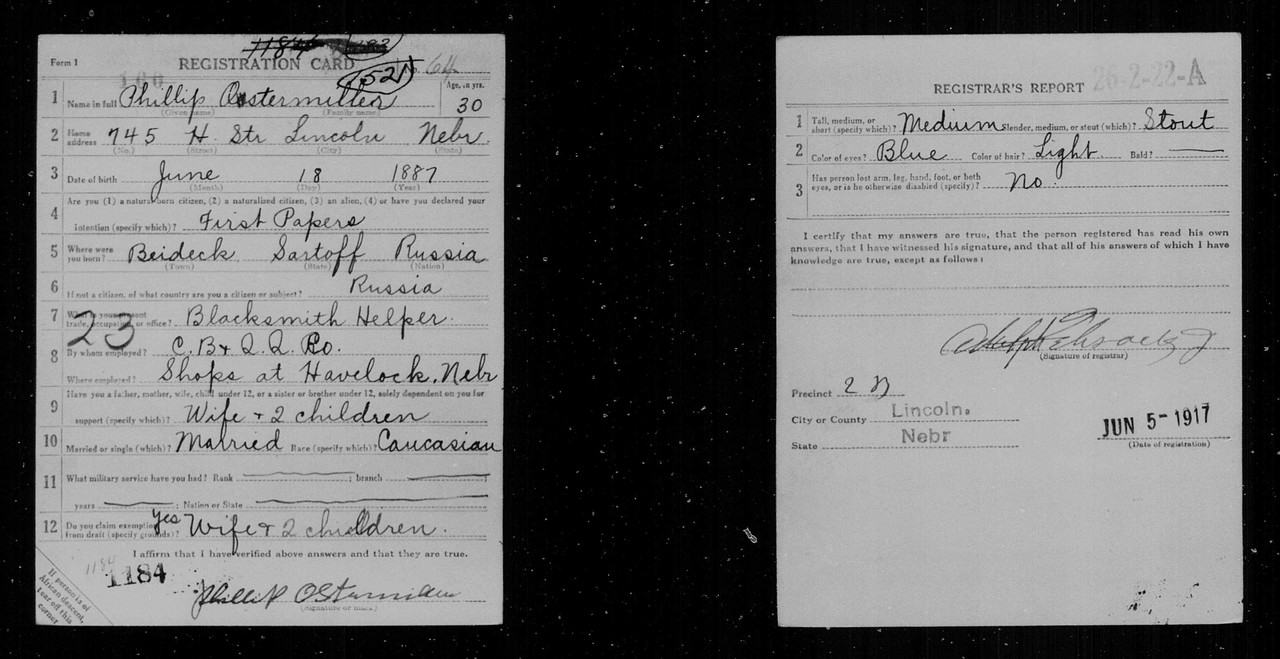 Form 1
REGISTRATION CARD
1521
64
166
1 Name in full Phillip Ostermiller Age, in yrs. 30
(Given name) (Family name)
2 Home address 745 H Str Lincoln Nebr.
(No.) (Street) (City) (State)
3 Date of birth June 18 1887
(Month) (Day) (Year)
Are you (1) a natural born citizen, (2) a naturalized citizen, (3) an alien, (4) or have you declared your
4 intention (specify which)? First Papers
5 Where were you born? Beideck Sartoff Russia
(Town) (State) (Nation)
6 If not a citizen, of what country are you a citizen or subject? Russia
7 What is your present trade, occupation, or office? Blacksmith Helper.
23
8 By whom employed? C.B & Q.Q. Ro.
Where employed? Shops at Havelock, Nebr
Have you a father, mother, wife, child under 12, or a sister or brother under 12, solely dependent on you for
9 support (specify which)? Wife + 2 children
10 Married or single (which)? Married Race (specify which)? Caucasian
11 What military service have you had? Rank ; branch
years ; Nation or State
12 Do you claim exemption from draft (specify grounds)? yes Wife + 2 children.
I affirm that I have verified above answers and that they are true.
1184
1184
Phillip Ostermiller
(Signature or mark)
If person is of
African descent,
tear off this
corner
26-2-22-A
REGISTRAR'S REPORT
1 Tall, medium, or short (specify which)? Medium Slender, medium, or stout (which)? Stout
2 Color of eyes? Blue Color of hair? Light. Bald?
3 Has person lost arm, leg, hand, foot, or both eyes, or is he otherwise disabled (specify)? No.
I certify that my answers are true, that the person registered has read his own
answers, that I have witnessed his signature, and that all of his answers of which I have
knowledge are true, except as follows:
(Signature of registrar)
Precinct 2
City or County Lincoln.
State Nebr
JUN 5-1917
(Date of registration)